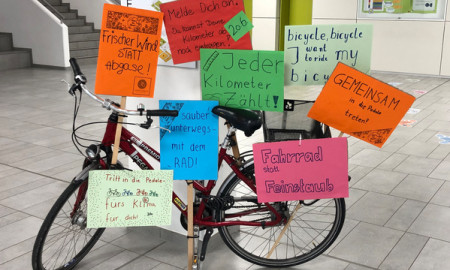 Melde Dich an!
Du kannst Deine
Kilometer ab
20.6
noch
bicycle, bicycle
I want
to ride my
bicy
Frischer Wind
STATT
Abgase!
Jeder
Kilometer
Zählt!
GEMEINSAM
in die Pedale
treten!
sauber
unterwegs
mit dem
RAD!
Fahrrad
statt
Feinstaub
Tritt in die Pedale
fürs Klima
für dich!